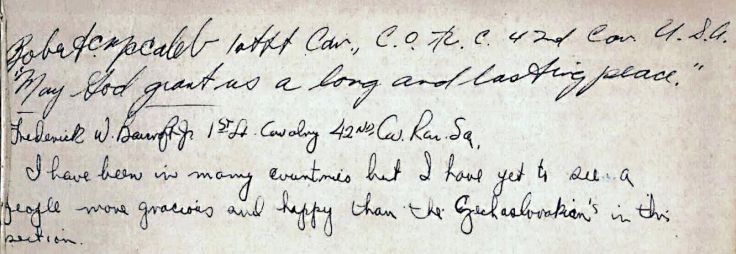 Robert C. McCaleb 1st Lt Cav., C.O. Tr. C. 42nd Cav. U.S.A.
"May God grant us a long and lasting peace."
Frederick W. Jr. 1st Lt. Cavalry 42ND Cav. Rcn. Sq.
I have been in many countries but I have yet to see a
people more gracious and happy than the Czechaslovakian's in this
section.